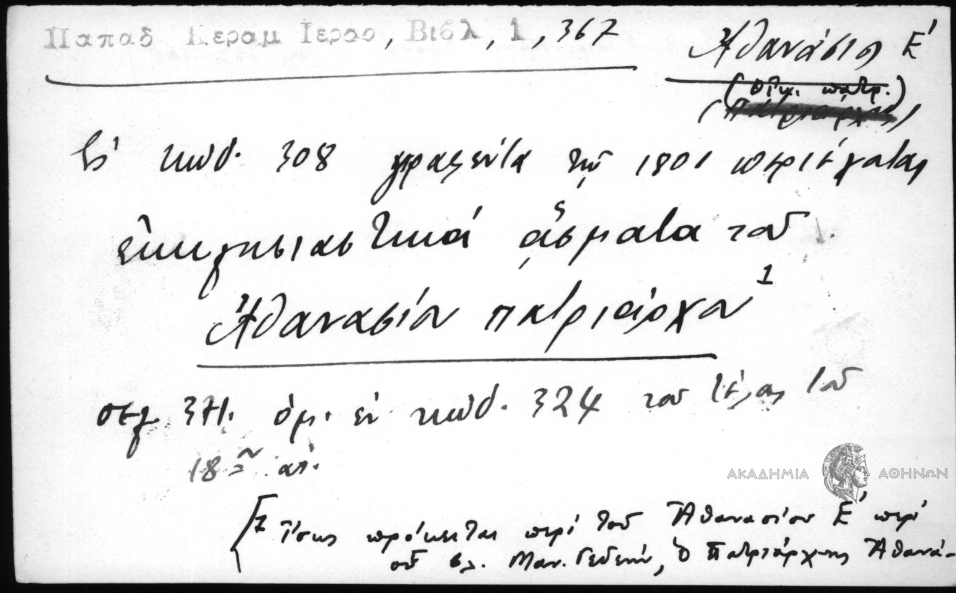 Παπαδ Κεραμ Ιεροσ, Βιβλ, 1, 367
Ἀθανάσιος Ε΄
(οἰκ. πατρ.)
(Πατριάρχης)
Ἐν κώδ. 308 γραφέντα τῷ 1801 περιέχεται
ἐκκλησιαστικά ᾄσματα τοῦ
Ἀθανασίου πατριάρχου 1
σελ 371. ὁμ. ἐν κώδ. 324 τοῦ τέλους τοῦ
18ου αἰ.
[1 Ἴσως πρόκειται περί τοῦ Ἀθανασίου Ε΄ περί
οὗ βλ. Μαν. Γεδεών, Ὁ Πατριάρχης Ἀθανά-
ΑΚΑΔΗΜΙΑ ΑΘΗΝΩΝ